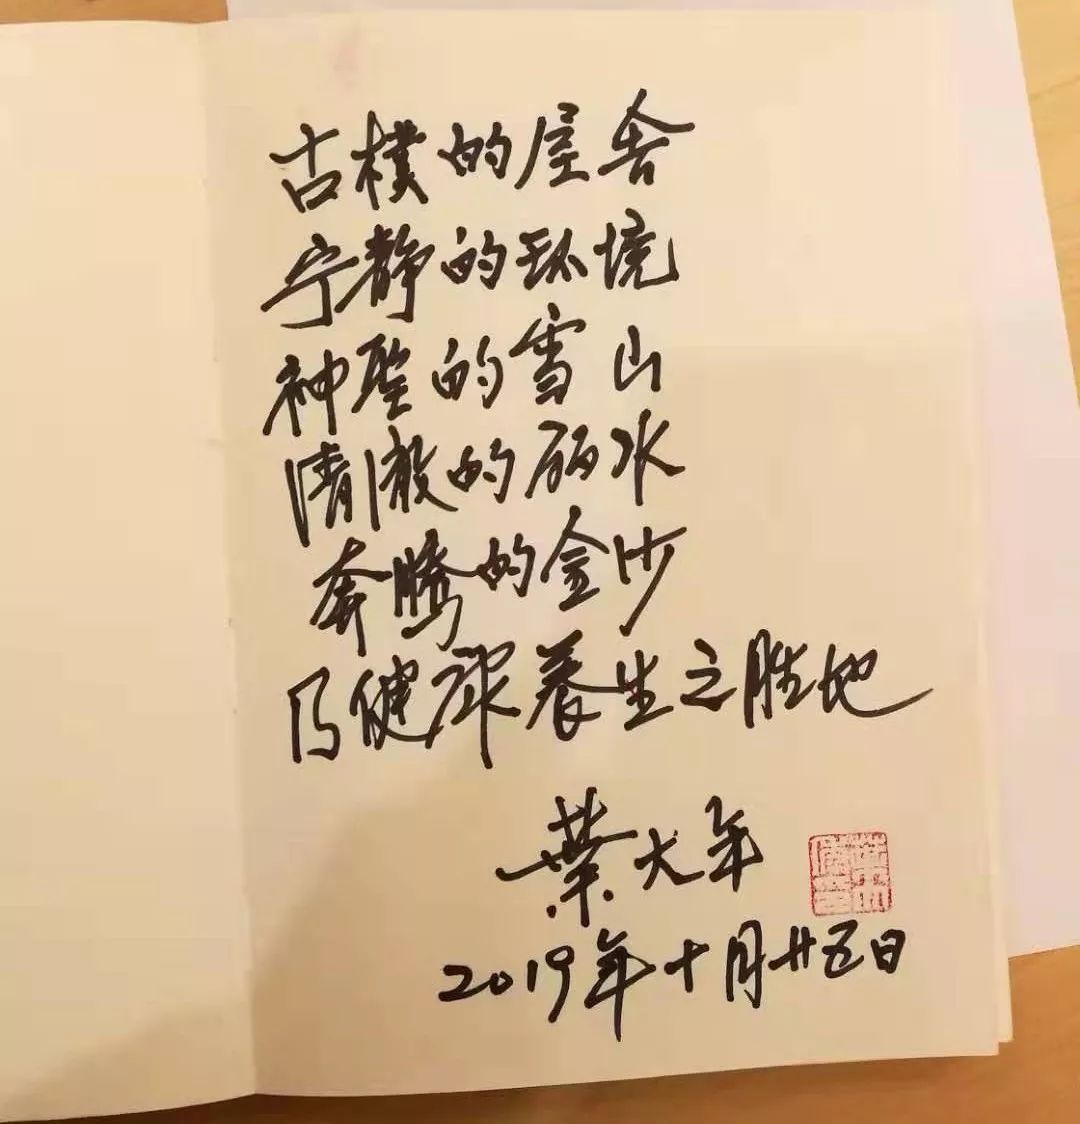 古樸的屋舍
宁静的环境
神聖的雪山
清澈的丽水
奔腾的金沙
乃健康养生之胜地
葉大年
2019年十月廿五日